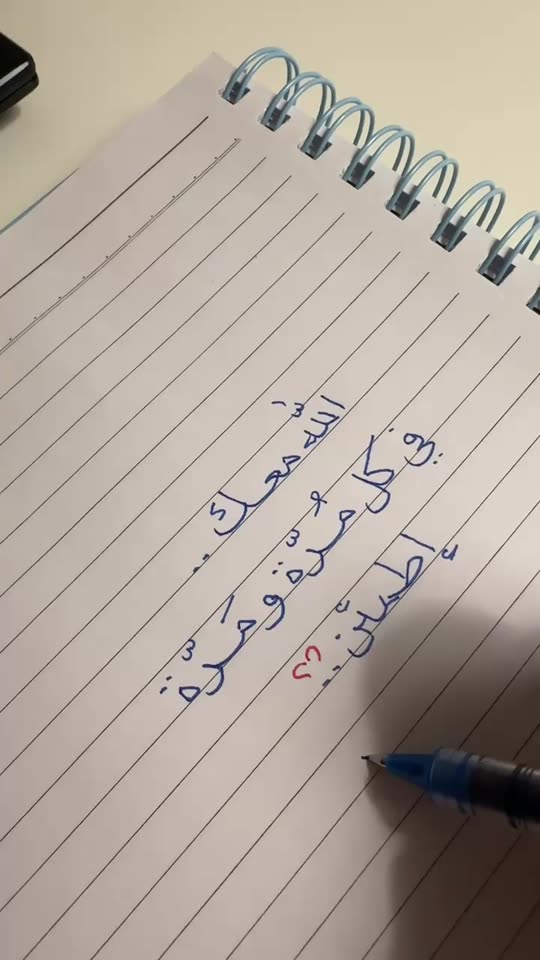 اللّه معك ..
في كل مُرّة و مَرّة
إطمئن ..